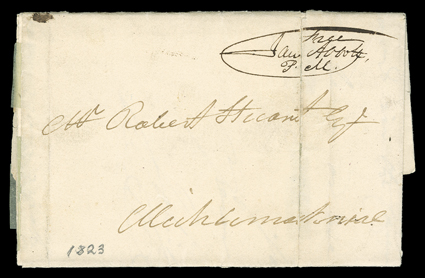 Free
Jas Abbott,
P. M.
Mr Robert Stuart Esq
Michilimackinac
1823